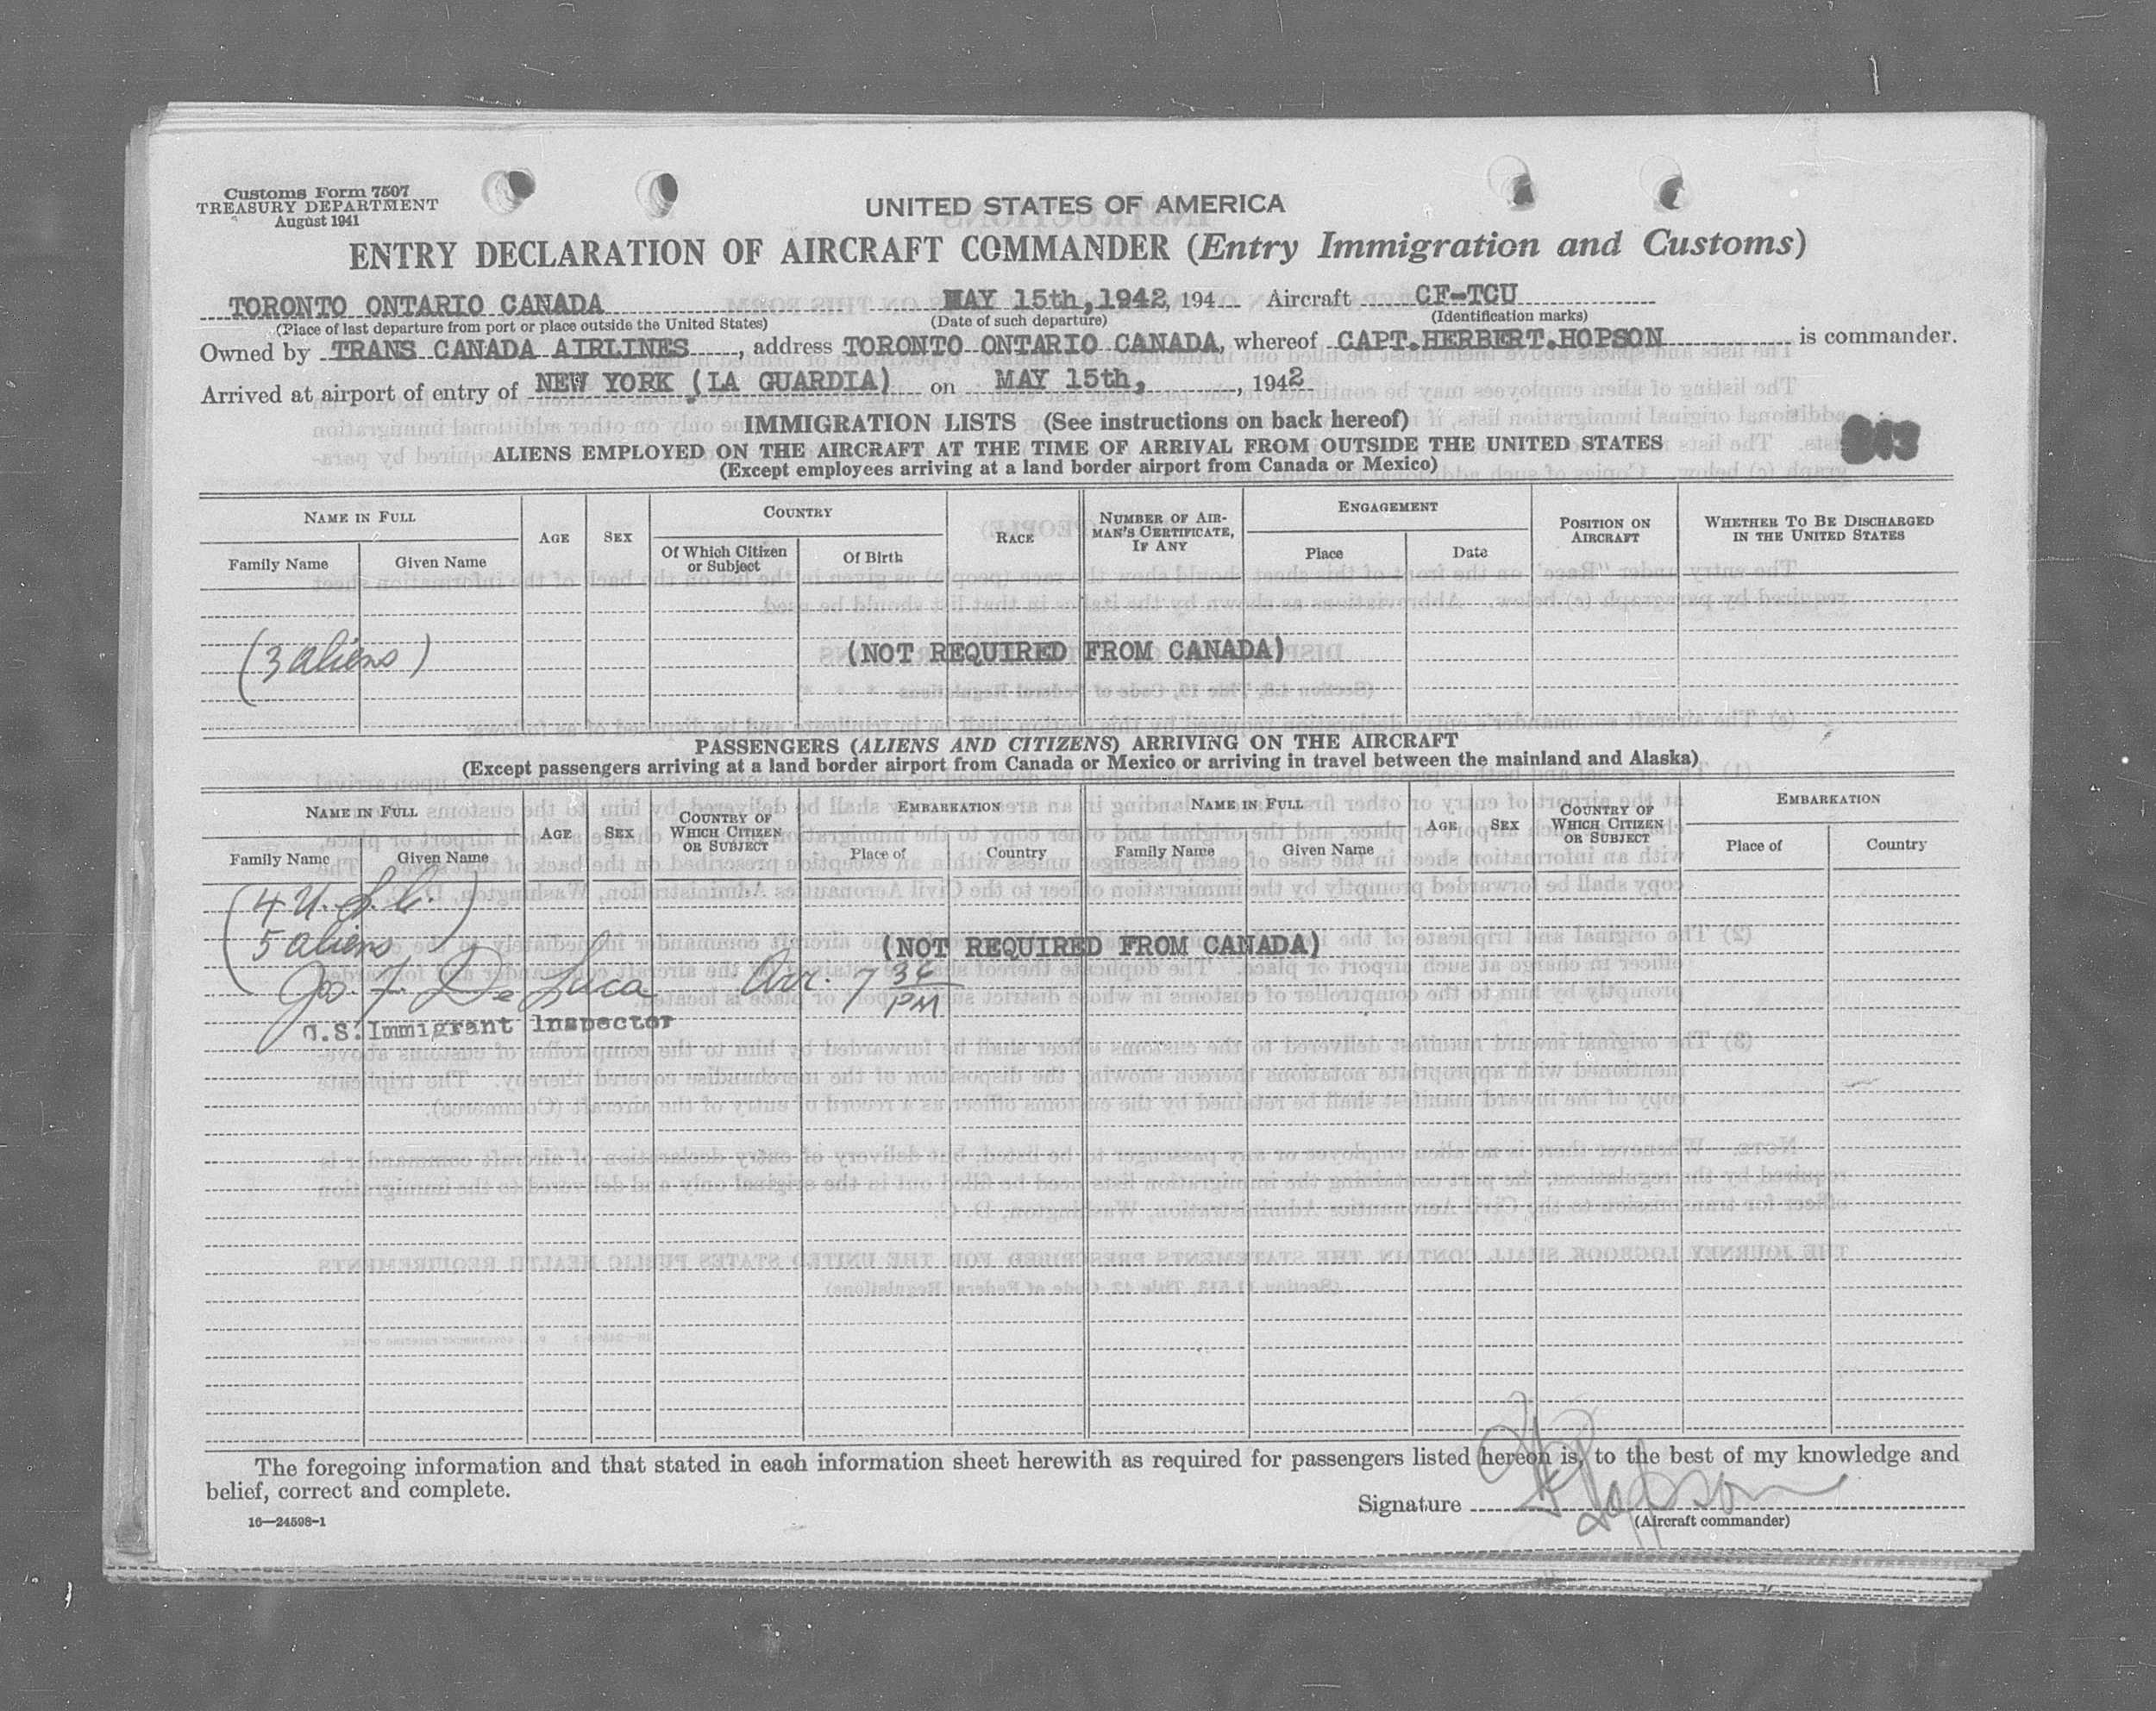 Customs Form 7507
TREASURY DEPARTMENT
August 1941
UNITED STATES OF AMERICA
ENTRY DECLARATION OF AIRCRAFT COMMANDER (Entry Immigration and Customs)
TORONTO ONTARIO CANADA MAY 15th,1942, 194 Aircraft CF-TCU
(Place of last departure from port or place outside the United States) (Date of such departure) (Identification marks)
Owned by TRANS CANADA AIRLINES, address TORONTO ONTARIO CANADA, whereof CAPT.HERBERT.HOPSON is commander.
Arrived at airport of entry of NEW YORK (LA GUARDIA) on MAY 15th, , 1942
IMMIGRATION LISTS (See instructions on back hereof)
ALIENS EMPLOYED ON THE AIRCRAFT AT THE TIME OF ARRIVAL FROM OUTSIDE THE UNITED STATES
(Except employees arriving at a land border airport from Canada or Mexico)
NAME IN FULL AGE SEX COUNTRY RACE NUMBER OF AIRMAN'S CERTIFICATE, IF ANY ENGAGEMENT POSITION ON AIRCRAFT WHETHER TO BE DISCHARGED IN THE UNITED STATES
Family Name Given Name Of Which Citizen or Subject Of Birth Place Date
(3 aliens) (NOT REQUIRED FROM CANADA)
PASSENGERS (ALIENS AND CITIZENS) ARRIVING ON THE AIRCRAFT
(Except passengers arriving at a land border airport from Canada or Mexico or arriving in travel between the mainland and Alaska)
NAME IN FULL AGE SEX COUNTRY OF WHICH CITIZEN OR SUBJECT EMBARKATION NAME IN FULL AGE SEX COUNTRY OF WHICH CITIZEN OR SUBJECT EMBARKATION
Family Name Given Name Place of Country Family Name Given Name Place of Country
(4 U.S.C.
5 aliens) (NOT REQUIRED FROM CANADA)
Jos. F. De Luca Arr. 7 PM
U.S. Immigrant Inspector
The foregoing information and that stated in each information sheet herewith as required for passengers listed hereon is, to the best of my knowledge and
belief, correct and complete.
Signature H Hopson
(Aircraft commander)
16—24598-1